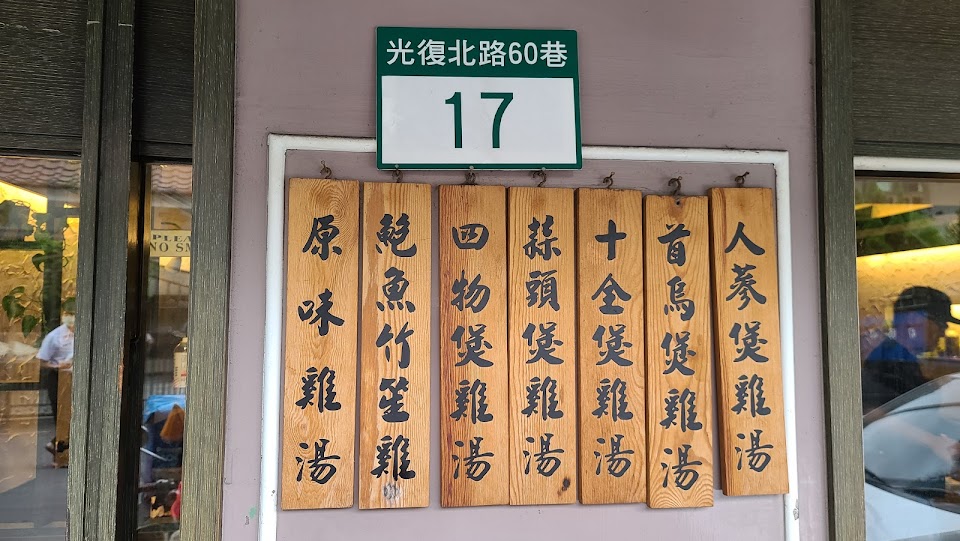 光復北路60巷
17
人蔘煲雞湯
首烏煲雞湯
十全煲雞湯
蒜頭煲雞湯
四物煲雞湯
鮑魚竹笙雞
原味雞湯
NO SM